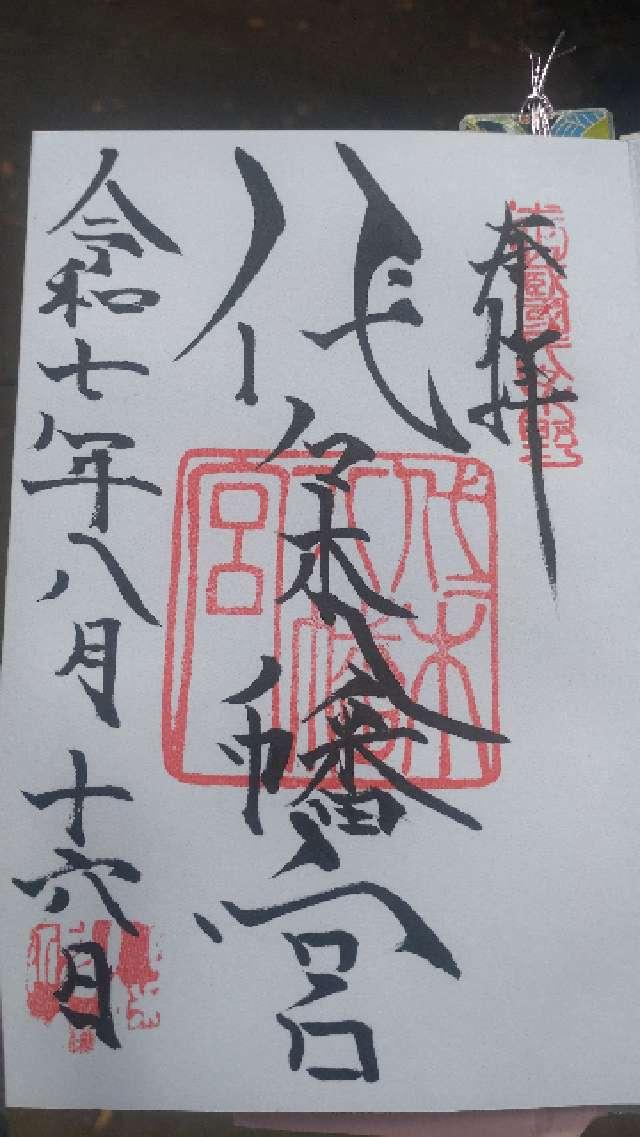 奉拝
代々木八幡宮
令和七年八月十六日
代々木
八幡
宮